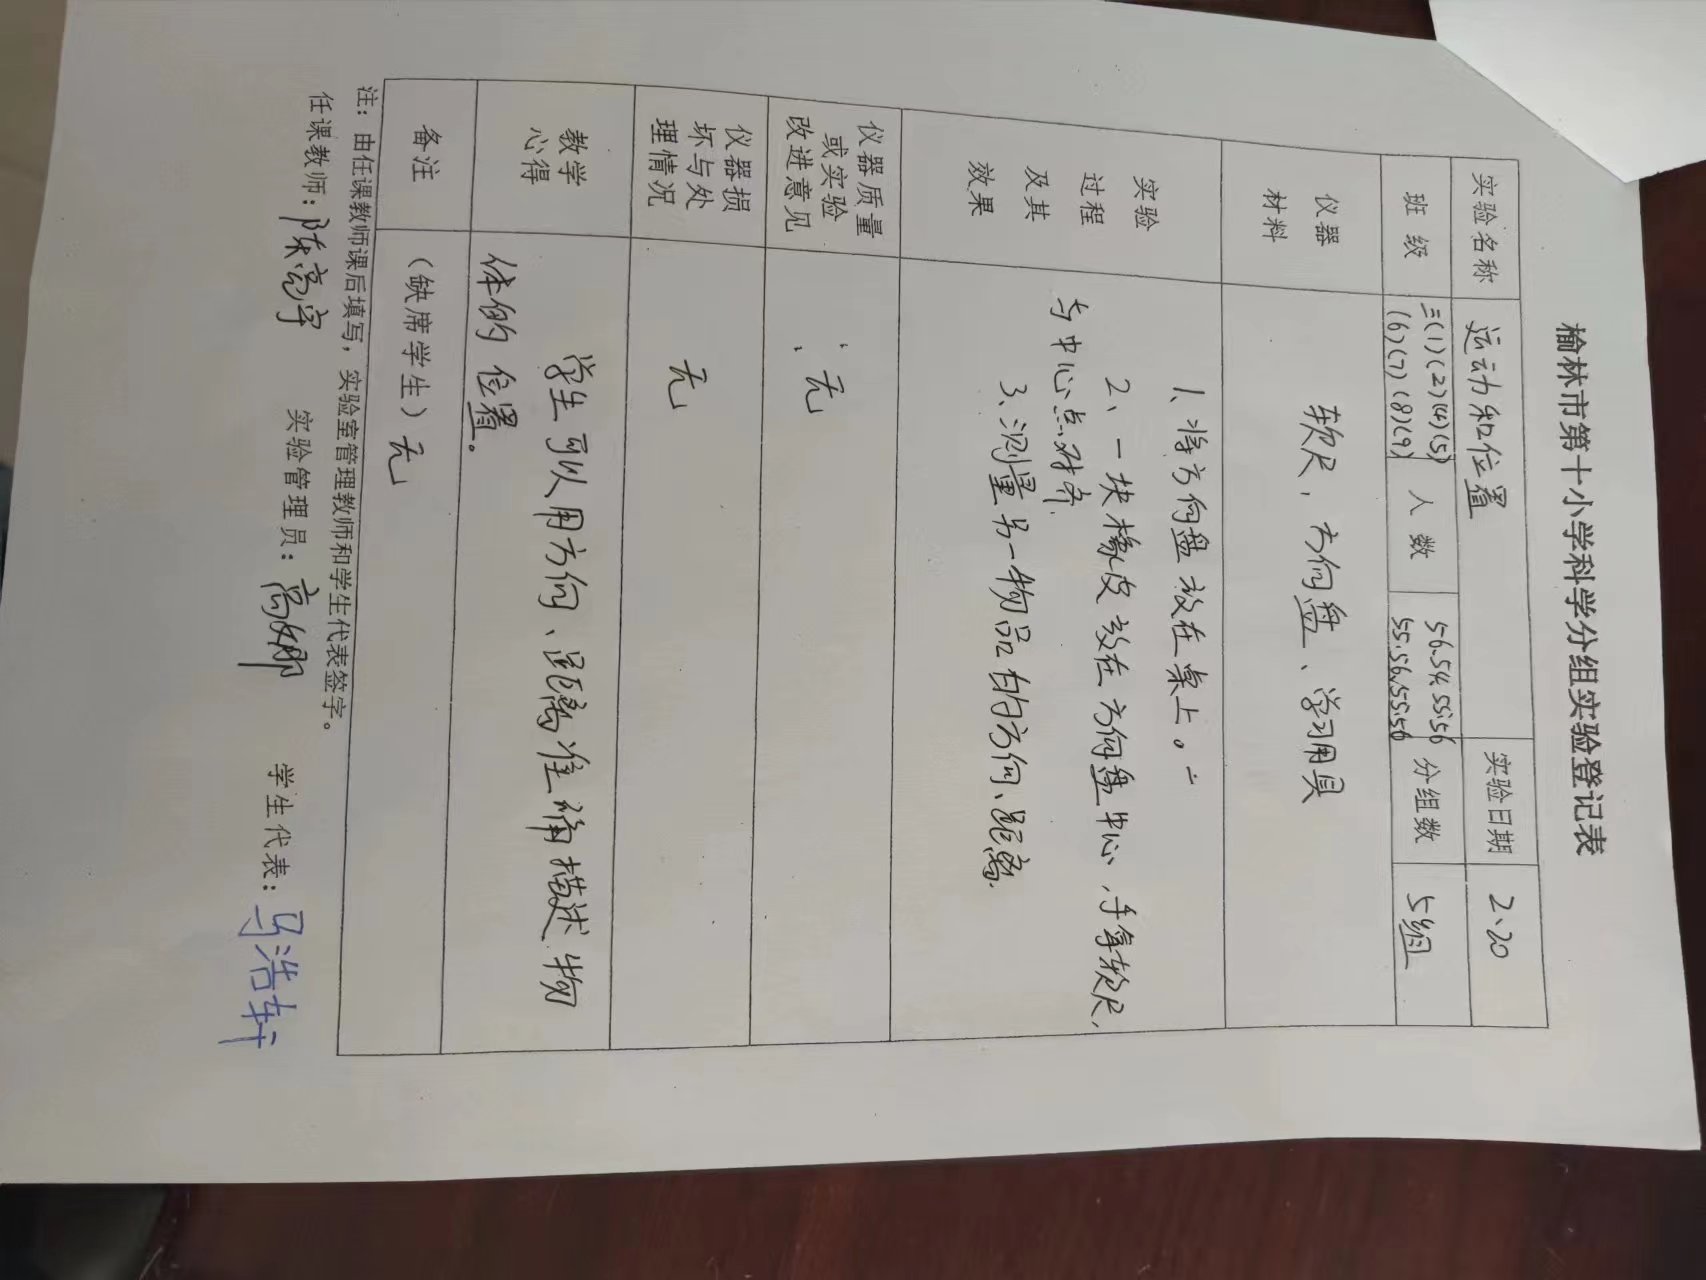 榆林市第十小学科学分组实验登记表
实验名称 运动和位置 实验日期 2、20
班级 三(1)(2)(4)(5) 人数 56.54.55.56 分组数 5组
(6)(7)(8)(9) 55.56.55.56
仪器 软尺，方向盘、学习用具
材料
实验 1、将方向盘放在桌上。
过程 2、一块橡皮放在方向盘中心，手拿软尺，
及其 与中心点对齐.
效果 3、测量另一物品的方向、距离.
仪器质量
或实验 无
改进意见
仪器损
坏与处 无
理情况
教学 学生可以用方向、距离准确描述物
心得 体的位置。
备注 (缺席学生) 无
注：由任课教师课后填写，实验室管理教师和学生代表签字。
任课教师：陈亮宇 实验管理员：高娜 学生代表：马浩轩